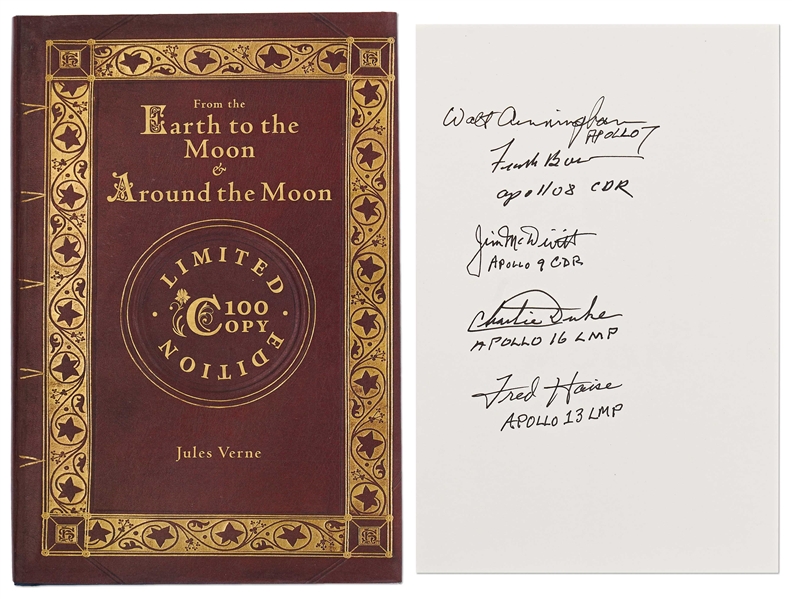 From the
Earth to the
Moon
&
Around the Moon
LIMITED
100
COPY
EDITION
Jules Verne
Walt Cunningham
APOLLO 7
Frank Borman
apollo 8 CDR
Jim McDivitt
APOLLO 9 CDR
Charlie Duke
APOLLO 16 LMP
Fred Haise
APOLLO 13 LMP